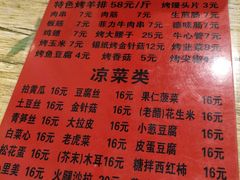 特色烤羊排 58元/斤 烤馒头片 3元
肉串 7元 肉筋 7元 生煎肠 7元
板筋 5元 牛油 7元
鸡翅 7元 烤大腰子 25元 牛心管 7元
烤玉米 7元 锡纸烤金针菇 12元 烤韭菜
烤鱼豆腐 4元 烤香菇 4元 烤尖椒
凉菜类
拍黄瓜 16元 豆腐丝 16元 果仁菠菜 16元
土豆丝 16元 金针菇 16元 (老醋)花生米 16元
青笋丝 16元 大拉皮 16元 小葱豆腐 16元
白菜心 16元 老虎菜 16元 皮蛋豆腐 16元
松花蛋 16元 (芥末)木耳 16元 糖拌西红柿 16元